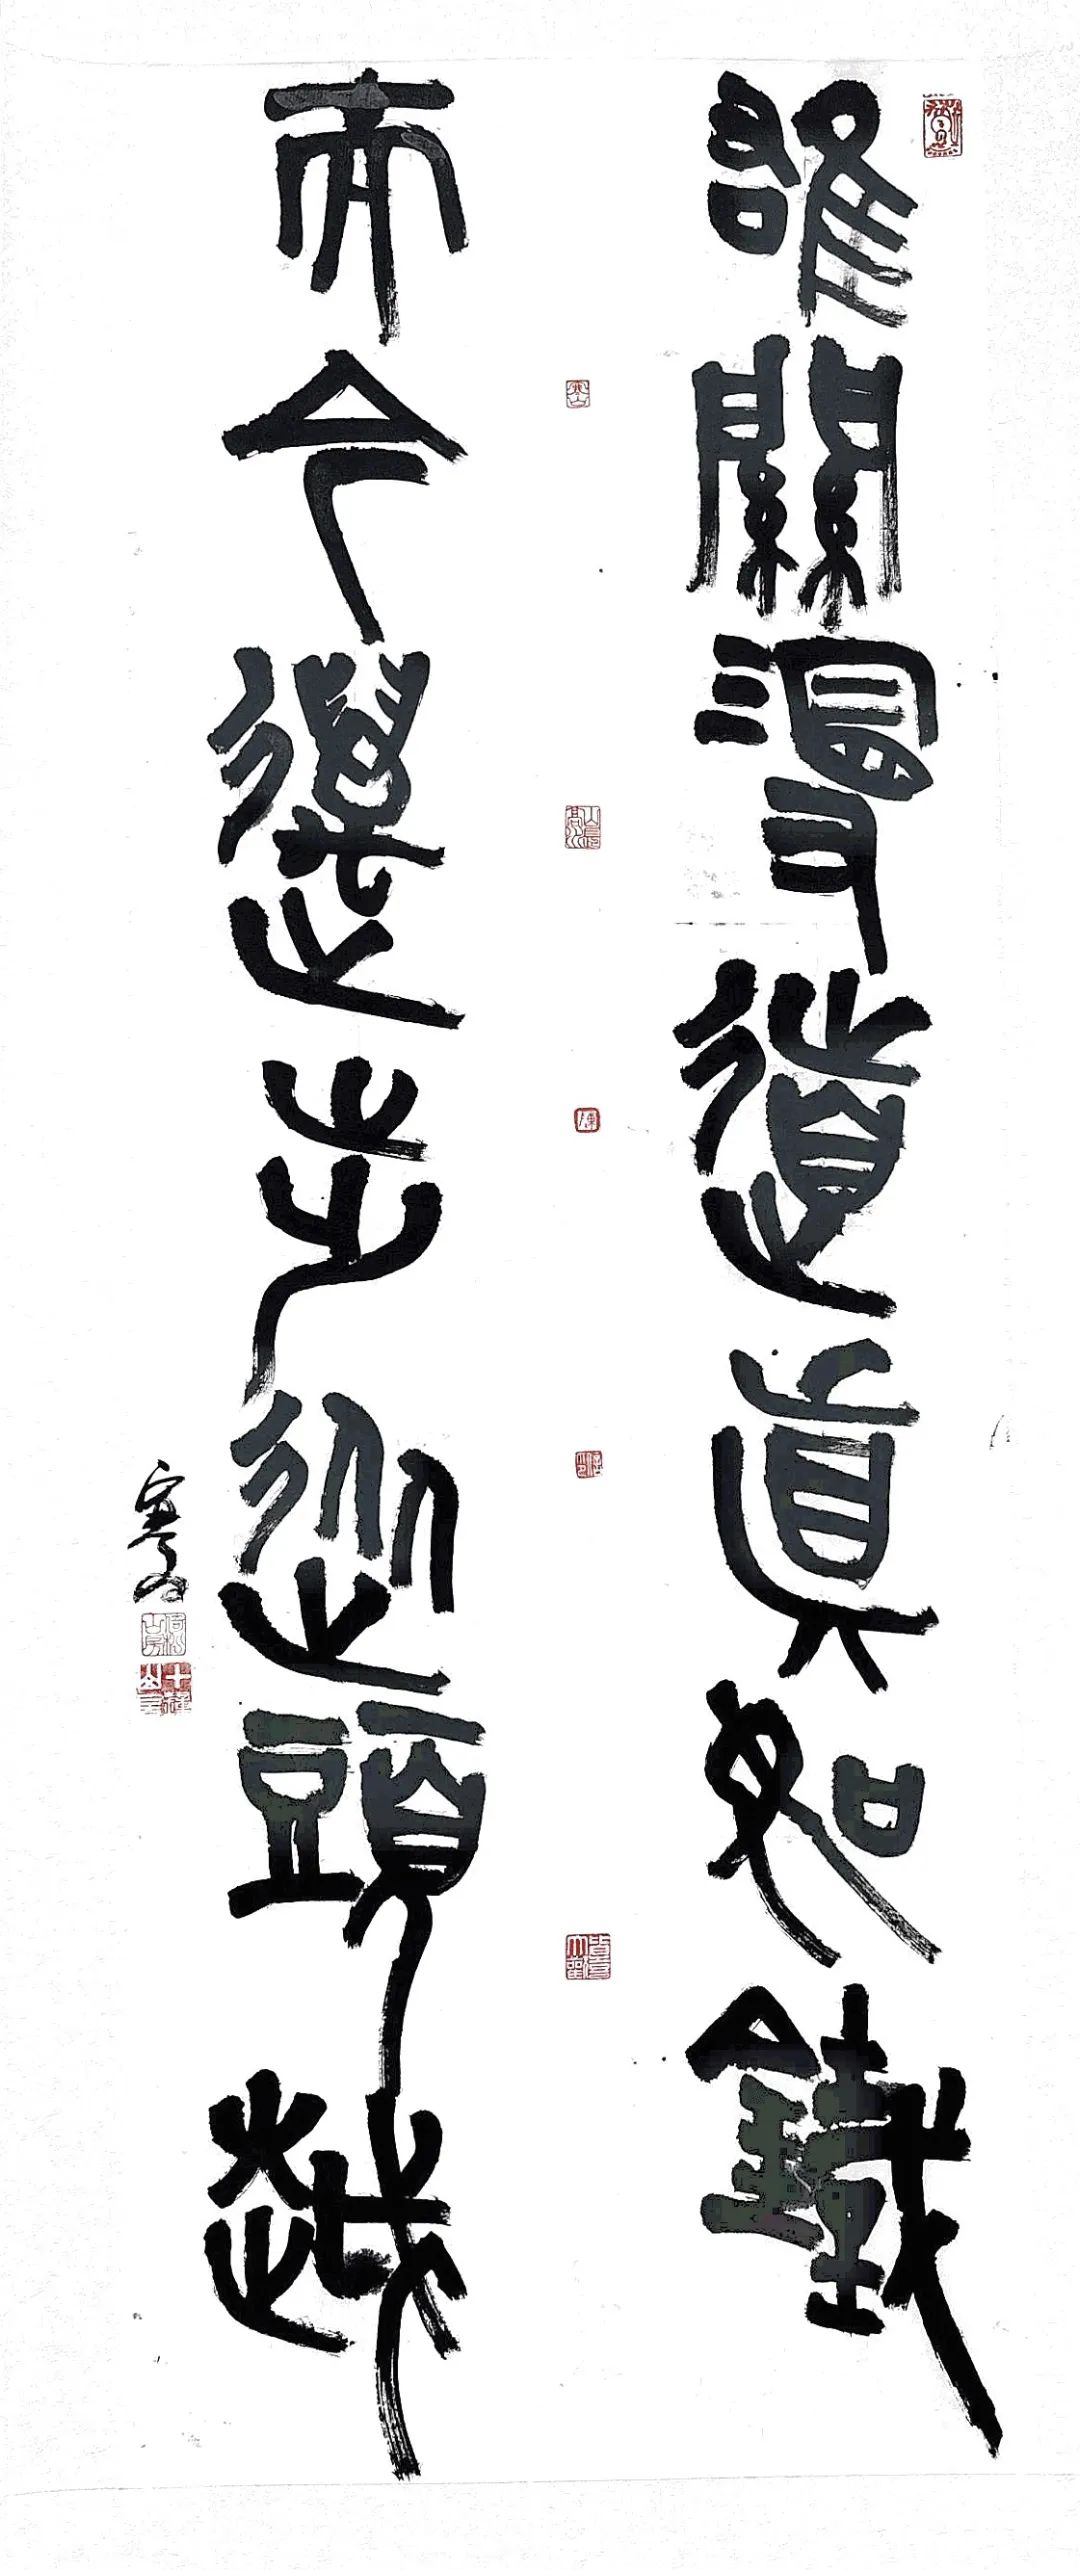 雄關漫道真如鐵
而今邁步從頭越
寒山